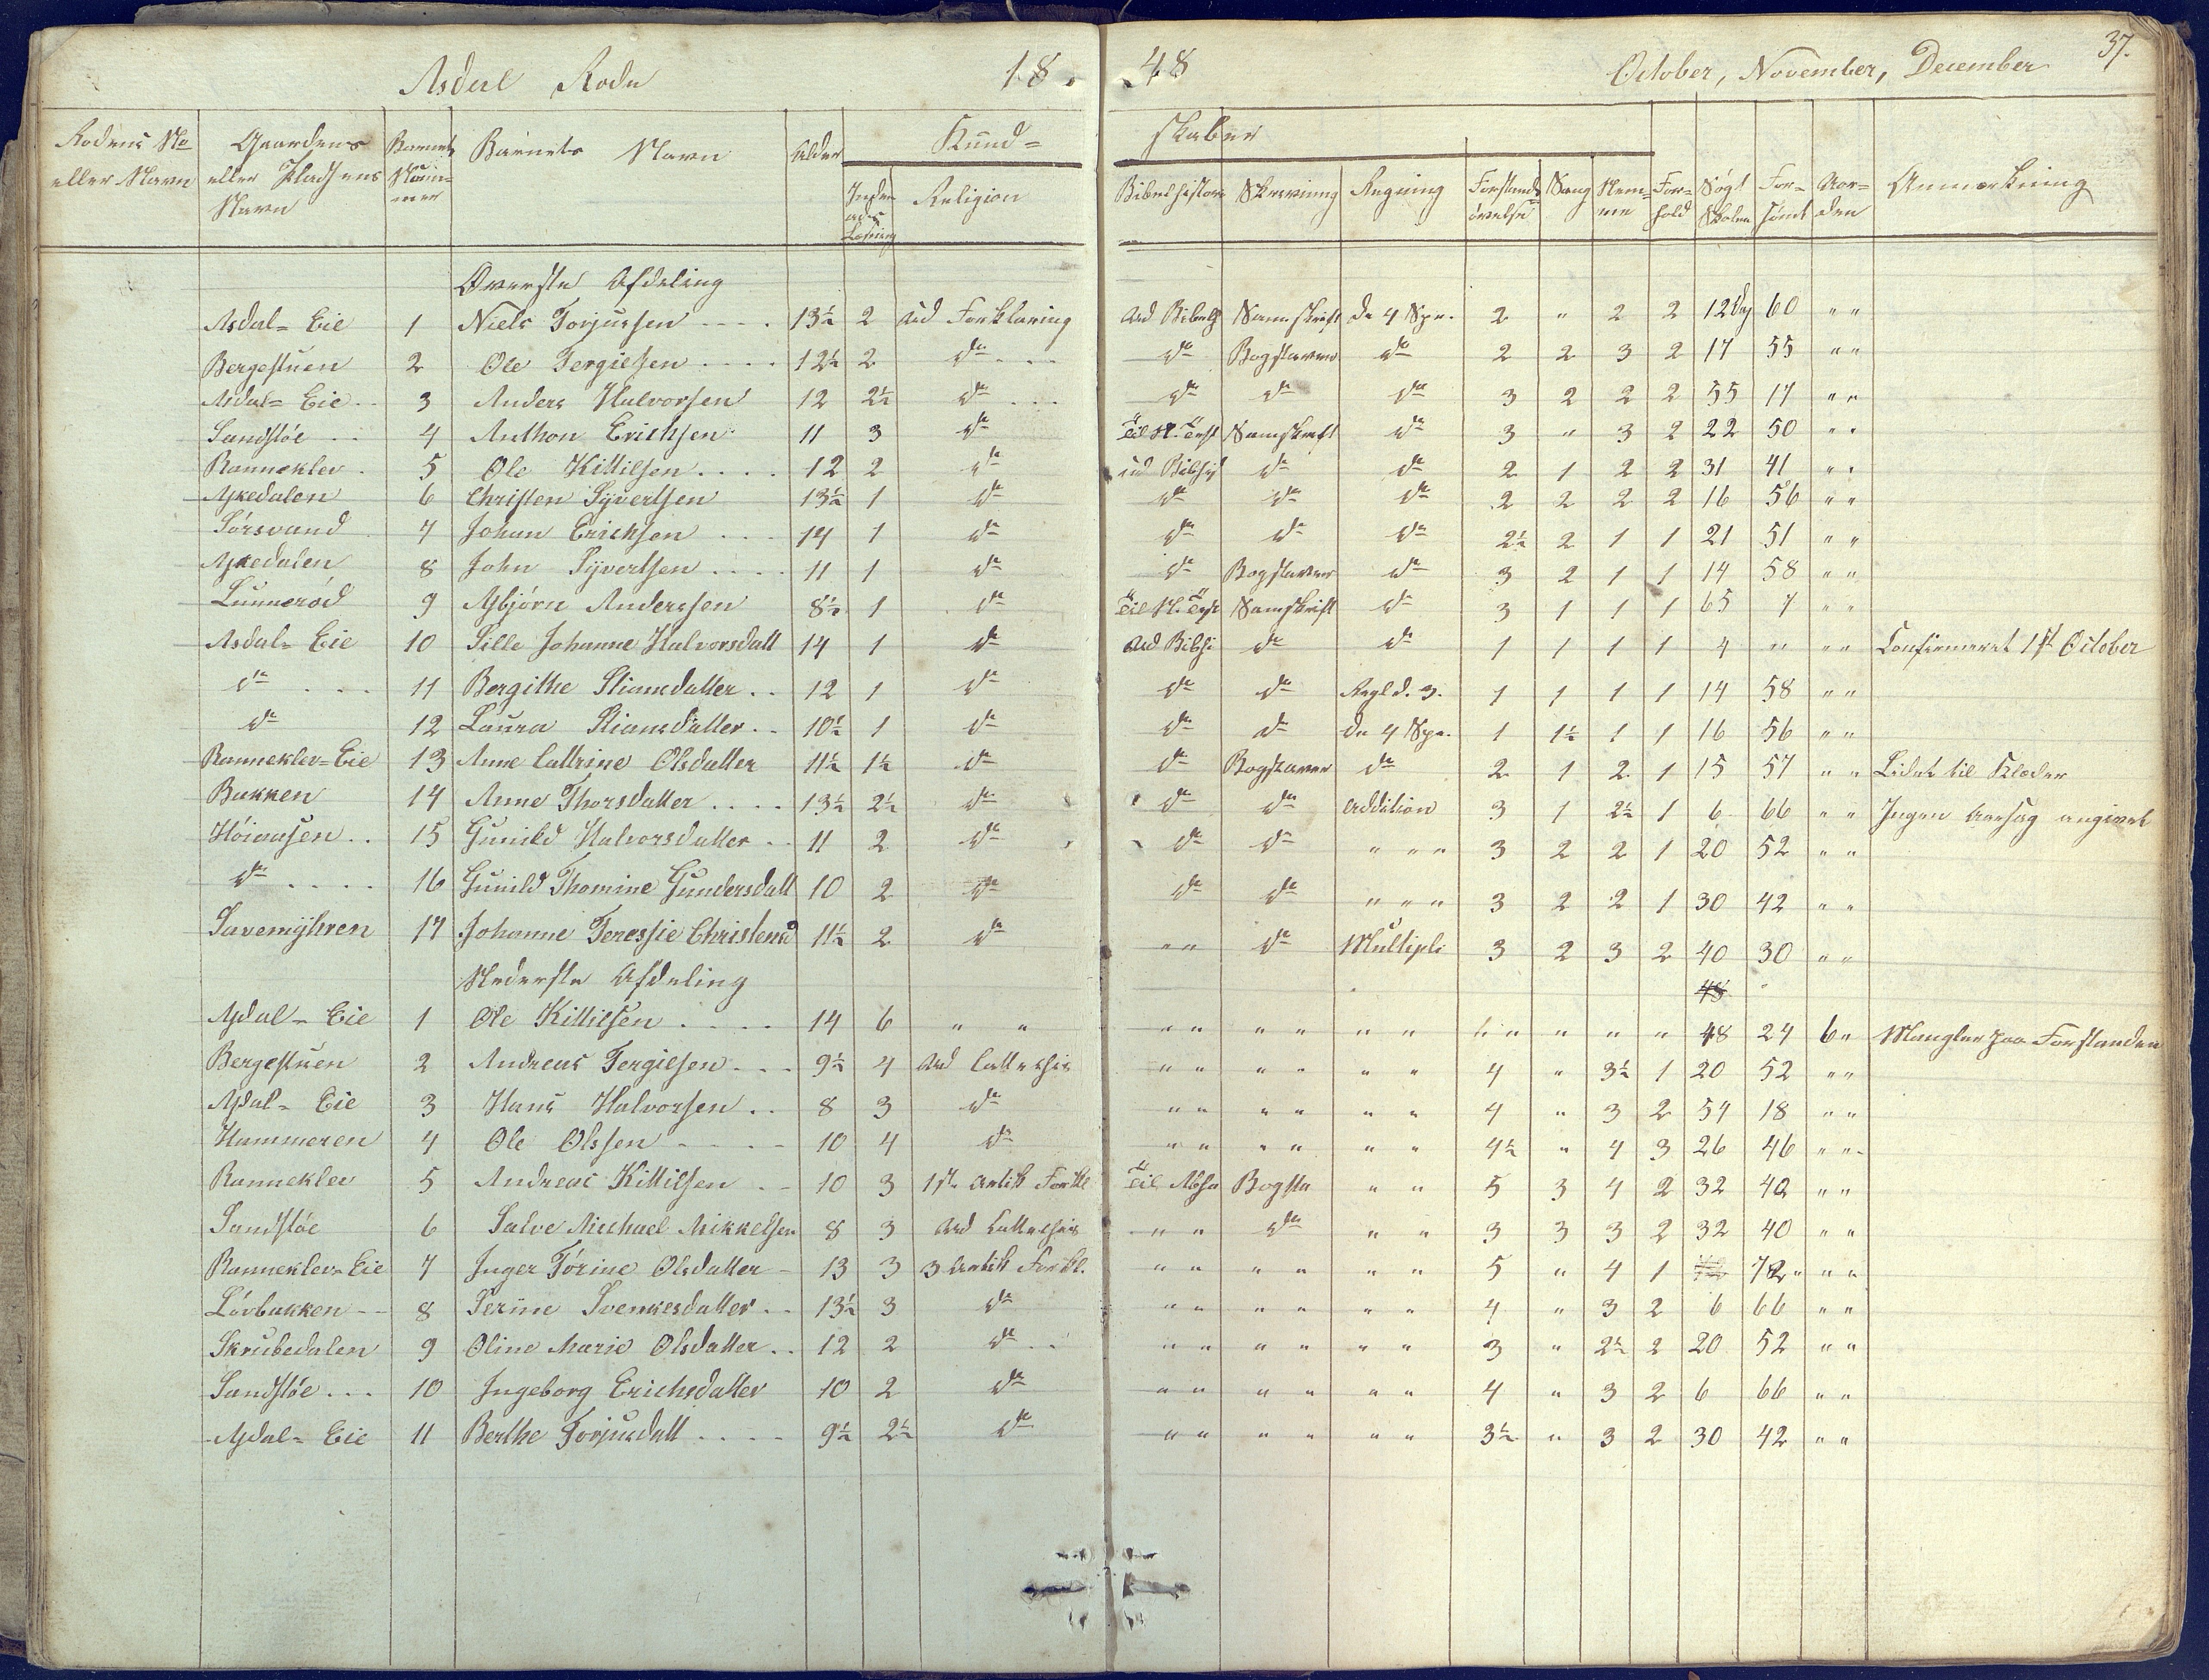 Asdal Rode 18 48 October, November, December 37.
Rodens No eller Navn | Gaardens eller Pladsens Navn | Barnets Nummer | Barnets Navn | Alder | Kund- skaber | Religion | Bibelhistorie | Skrivning | Regning | Forstands øvelse | Sang | Nem- me | For- hold | Søgt Skolen | For- sømt | Aor- den | Anmærkning
Øverste Afdeling
Asdal- Eie 1 Niels Torjussen 13½ 2 ud Forklaring ud Bibelh Samskrift de 4 Spe. 2 " 2 2 12 60 " "
Bergestuen 2 Ole Tergielsen 12½ 2 do do Bogstaver do 2 2 3 2 17 55 " "
Asdal- Eie 3 Anders Halvorsen 12 2½ do do do do 3 2 2 2 55 17 " "
Sandstøe 4 Anthon Erichsen 11 3 do Til N. Test Samskrift do 3 " 3 2 22 50 " "
Ranneklev 5 Ole Kittilsen 12 2 do ud do do 2 1 2 2 31 41 " "
Askedalen 6 Christen Syvertsen 13½ 1 do do do do 2 2 2 2 16 56 " "
Sørsvand 7 Johan Erichsen 14 1 do do do do 2½ 2 1 1 21 51 " "
Askedalen 8 John Syvertsen 11 1 do do Bogstaver do 3 2 1 1 14 58 " "
Lunnerød 9 Asbjørn Anderssen 8½ 1 do Til N. Test Samskrift do 3 1 1 1 65 7 " "
Asdal- Eie 10 Sille Johanne Halvorsdatt 14 1 do ud Bibhi do do 1 1 1 1 4 " " " Confirmeret 1st October
do 11 Bergithe Stiansdatter 12 1 do do do Regl d. 3. 1 1 1 1 14 58 " "
do 12 Laura Stiansdatter 10½ 1 do do do de 4 Spe. 1 1½ 1 1 16 56 " "
Ranneklev-Eie 13 Anne Cattrine Olsdatter 11½ 1½ do do Bogstaver do 2 1 2 1 15 57 " " Lidet til Klæder
Bakken 14 Anne Thorsdatter 13½ 2½ do do do Addition 3 1 2½ 1 6 66 " " Ingen Aarsag angivet
Høiaasen 15 Gunild Halvorsdatter 11 2 do do do " " " 3 2 2 1 20 52 " "
do 16 Gunild Thomine Gundersdatt 10 2 do do do " " " 3 2 2 1 30 42 " "
Savemyhren 17 Johanne Teressie Christensd 11½ 2 do " " do Multipli 3 2 3 2 40 30 " "
Nederste Afdeling 48
Asdal- Eie 1 Ole Kittilsen 14 6 " " " " " " " " " " " " " 48 24 6 " Mangler paa Forstanden
Bergestuen 2 Andreas Tergielsen 9½ 4 ud Cattechis " " " " " " 4 " 3½ 1 20 52 " "
Asdal- Eie 3 Hans Halvorsen 8 3 do " " " " " " 4 " 3 2 54 18 " "
Hammeren 4 Ole Olssen 10 4 do " " " " " " 4½ " 4 3 26 46 " "
Ranneklev 5 Andreas Kittilsen 10 3 1ste Artik Forkl Til Absa Bogsta " " 5 3 4 2 32 40 " "
Sandstøe 6 Salve Michael Mikkelsen 8 3 ud Cattechis " " do " " 3 3 3 2 32 40 " "
Ranneklev-Eie 7 Inger Tørine Olsdatter 13 3 3 Artik Forkl. " " " " " " 5 " 4 1 72 " " "
Løvbakken 8 Serine Svenkesdatter 13½ 3 do " " " " " " 4 " 3 2 6 66 " "
Skrubedalen 9 Oline Marie Olsdatter 12 2 do " " " " " " 3 " 2½ 2 20 52 " "
Sandstøe 10 Ingeborg Erichsdatter 10 2 do " " " " " " 4 " 3 2 6 66 " "
Asdal- Eie 11 Berthe Torjusdatt 9½ 2½ do " " " " " " 3½ " 3 2 30 42 " "